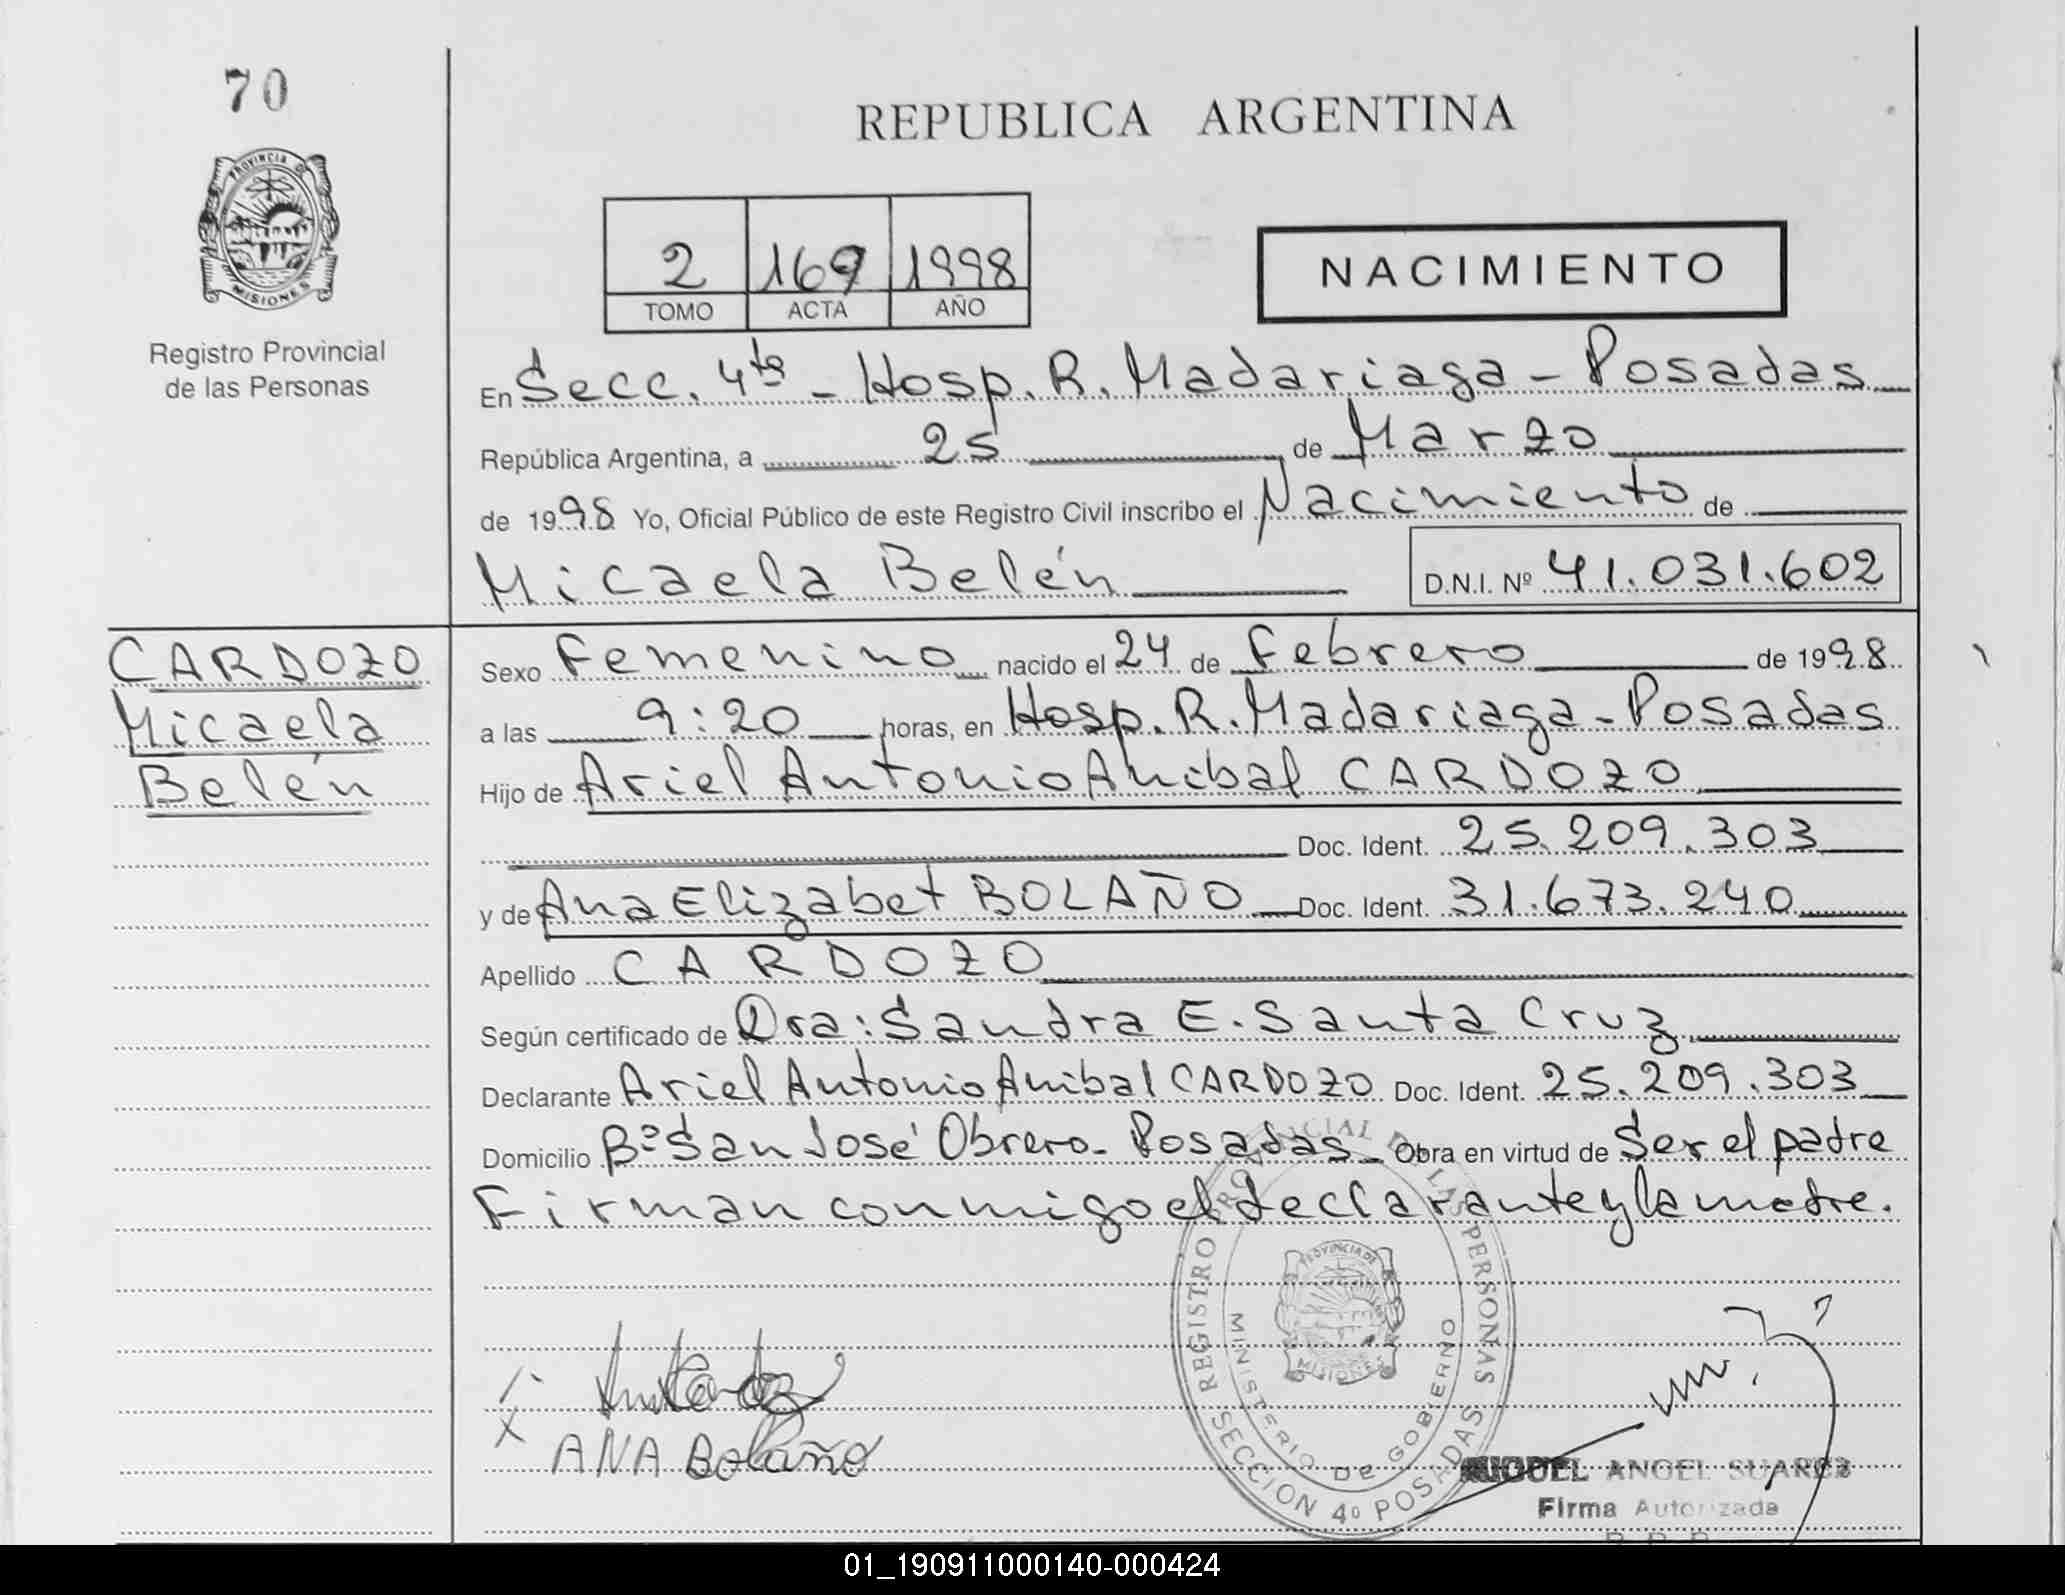 70
PROVINCIA DE
MISIONES
Registro Provincial
de las Personas
REPUBLICA ARGENTINA
2 169 1998
TOMO ACTA AÑO
NACIMIENTO
En Secc. 4ta - Hosp. R. Madariaga - Posadas
República Argentina, a 25 de Marzo
de 1998 Yo, Oficial Público de este Registro Civil inscribo el Nacimiento de
Micaela Belén D.N.I. Nº 41.031.602
CARDOZO
Micaela
Belén
Sexo Femenino nacido el 24 de Febrero de 1998
a las 9:20 horas, en Hosp. R. Madariaga - Posadas
Hijo de Ariel Antonio Anibal CARDOZO
Doc. Ident. 25.209.303
y de Ana Elizabet BOLAÑO Doc. Ident. 31.673.240
Apellido CARDOZO
Según certificado de Dra: Sandra E. Santa Cruz
Declarante Ariel Antonio Anibal CARDOZO Doc. Ident. 25.209.303
Domicilio Bº San José Obrero - Posadas - Obra en virtud de Ser el padre
Firman conmigo el declarante y la madre.
REGISTRO PROVINCIAL DE LAS PERSONAS
MINISTERIO DE GOBIERNO
PROVINCIA DE
MISIONES
SECCION 4º POSADAS
ANA Bolaño
ANGEL SUAREZ
Firma Autorizada
01_190911000140-000424